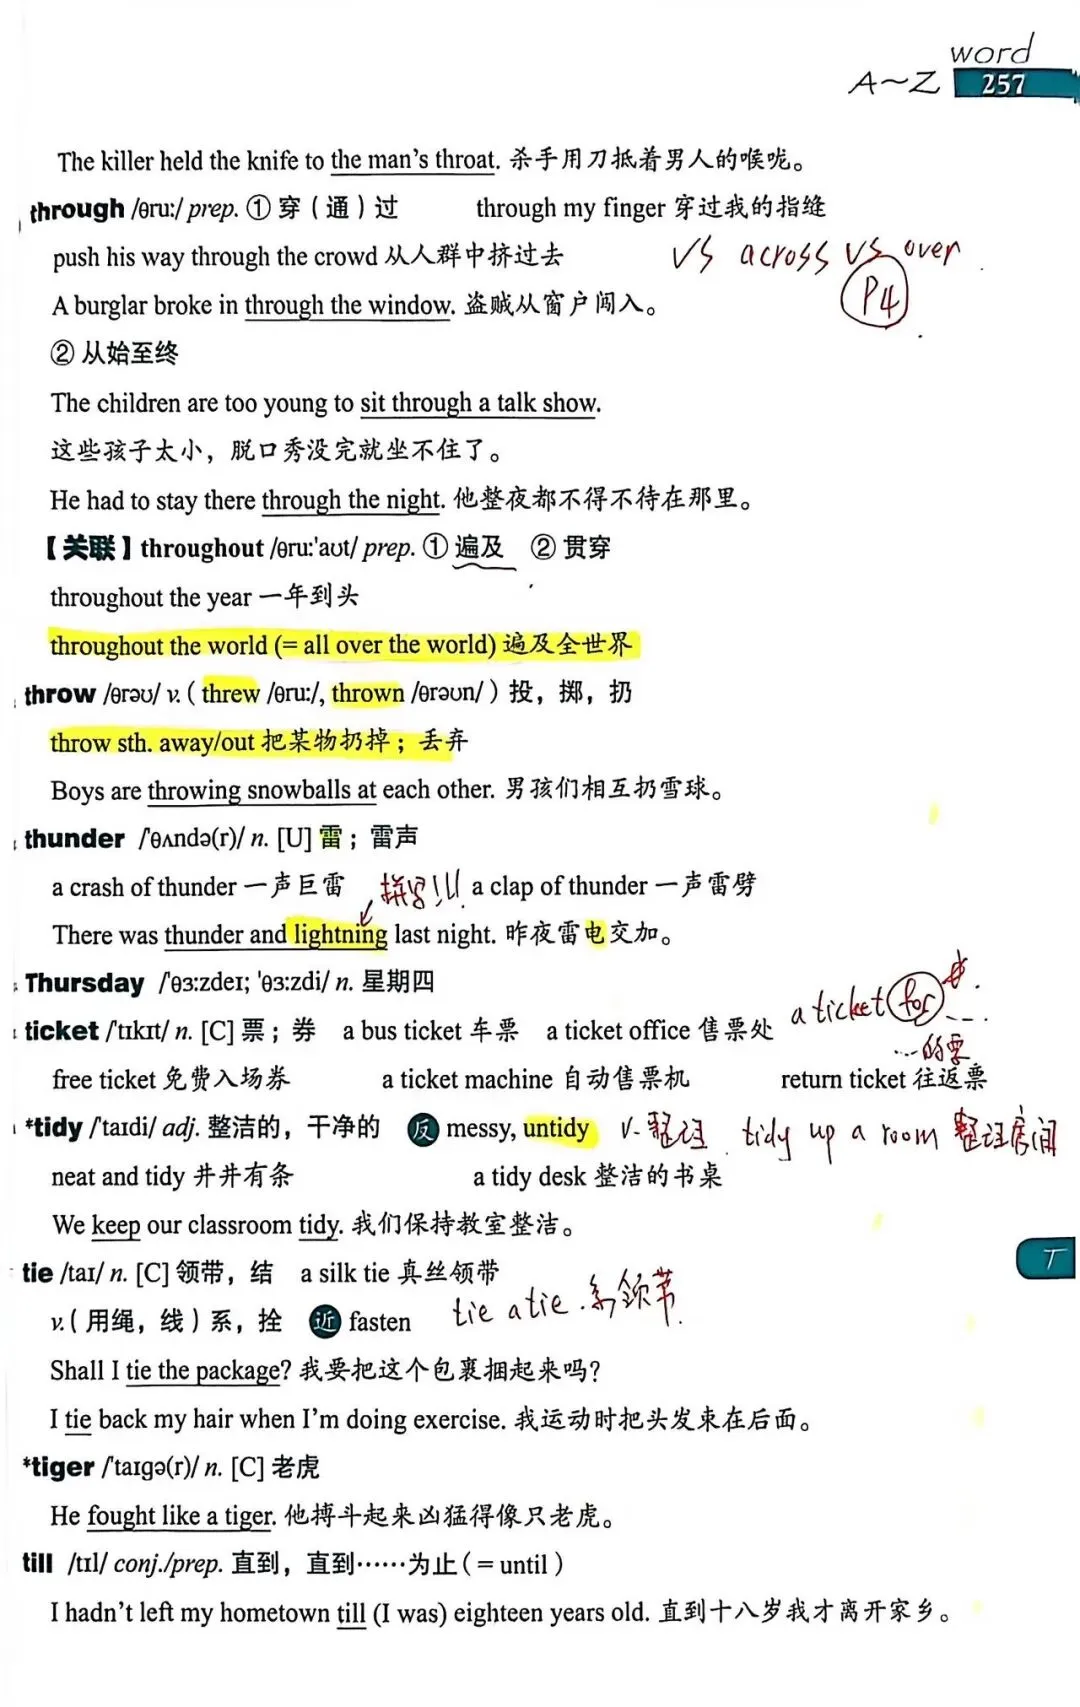 word
A～Z 257
The killer held the knife to the man's throat. 杀手用刀抵着男人的喉咙。
through /θru:/ prep. ① 穿（通）过 through my finger 穿过我的指缝
push his way through the crowd 从人群中挤过去 VS across VS over
A burglar broke in through the window. 盗贼从窗户闯入。 P4
② 从始至终
The children are too young to sit through a talk show.
这些孩子太小，脱口秀没完就坐不住了。
He had to stay there through the night. 他整夜都不得不待在那里。
【关联】throughout /θru:'aʊt/ prep. ① 遍及 ② 贯穿
throughout the year 一年到头
throughout the world (= all over the world) 遍及全世界
throw /θrəʊ/ v.（threw /θru:/, thrown /θrəʊn/）投，掷，扔
throw sth. away/out 把某物扔掉；丢弃
Boys are throwing snowballs at each other. 男孩们相互扔雪球。
thunder /'θʌndə(r)/ n. [U] 雷；雷声
a crash of thunder 一声巨雷 拼写!!! a clap of thunder 一声雷劈
There was thunder and lightning last night. 昨夜雷电交加。
Thursday /'θɜ:zdeɪ; 'θɜ:zdi/ n. 星期四
ticket /'tɪkɪt/ n. [C] 票；券 a bus ticket 车票 a ticket office 售票处 a ticket for ...
...的票
free ticket 免费入场券 a ticket machine 自动售票机 return ticket 往返票
*tidy /'taɪdi/ adj. 整洁的，干净的 反 messy, untidy v. 整理 tidy up a room 整理房间
neat and tidy 井井有条 a tidy desk 整洁的书桌
We keep our classroom tidy. 我们保持教室整洁。
T
tie /taɪ/ n. [C] 领带，结 a silk tie 真丝领带
v.（用绳，线）系，拴 近 fasten tie a tie. 系领带.
Shall I tie the package? 我要把这个包裹捆起来吗?
I tie back my hair when I'm doing exercise. 我运动时把头发束在后面。
*tiger /'taɪgə(r)/ n. [C] 老虎
He fought like a tiger. 他搏斗起来凶猛得像只老虎。
till /tɪl/ conj./prep. 直到，直到……为止（= until）
I hadn't left my hometown till (I was) eighteen years old. 直到十八岁我才离开家乡。